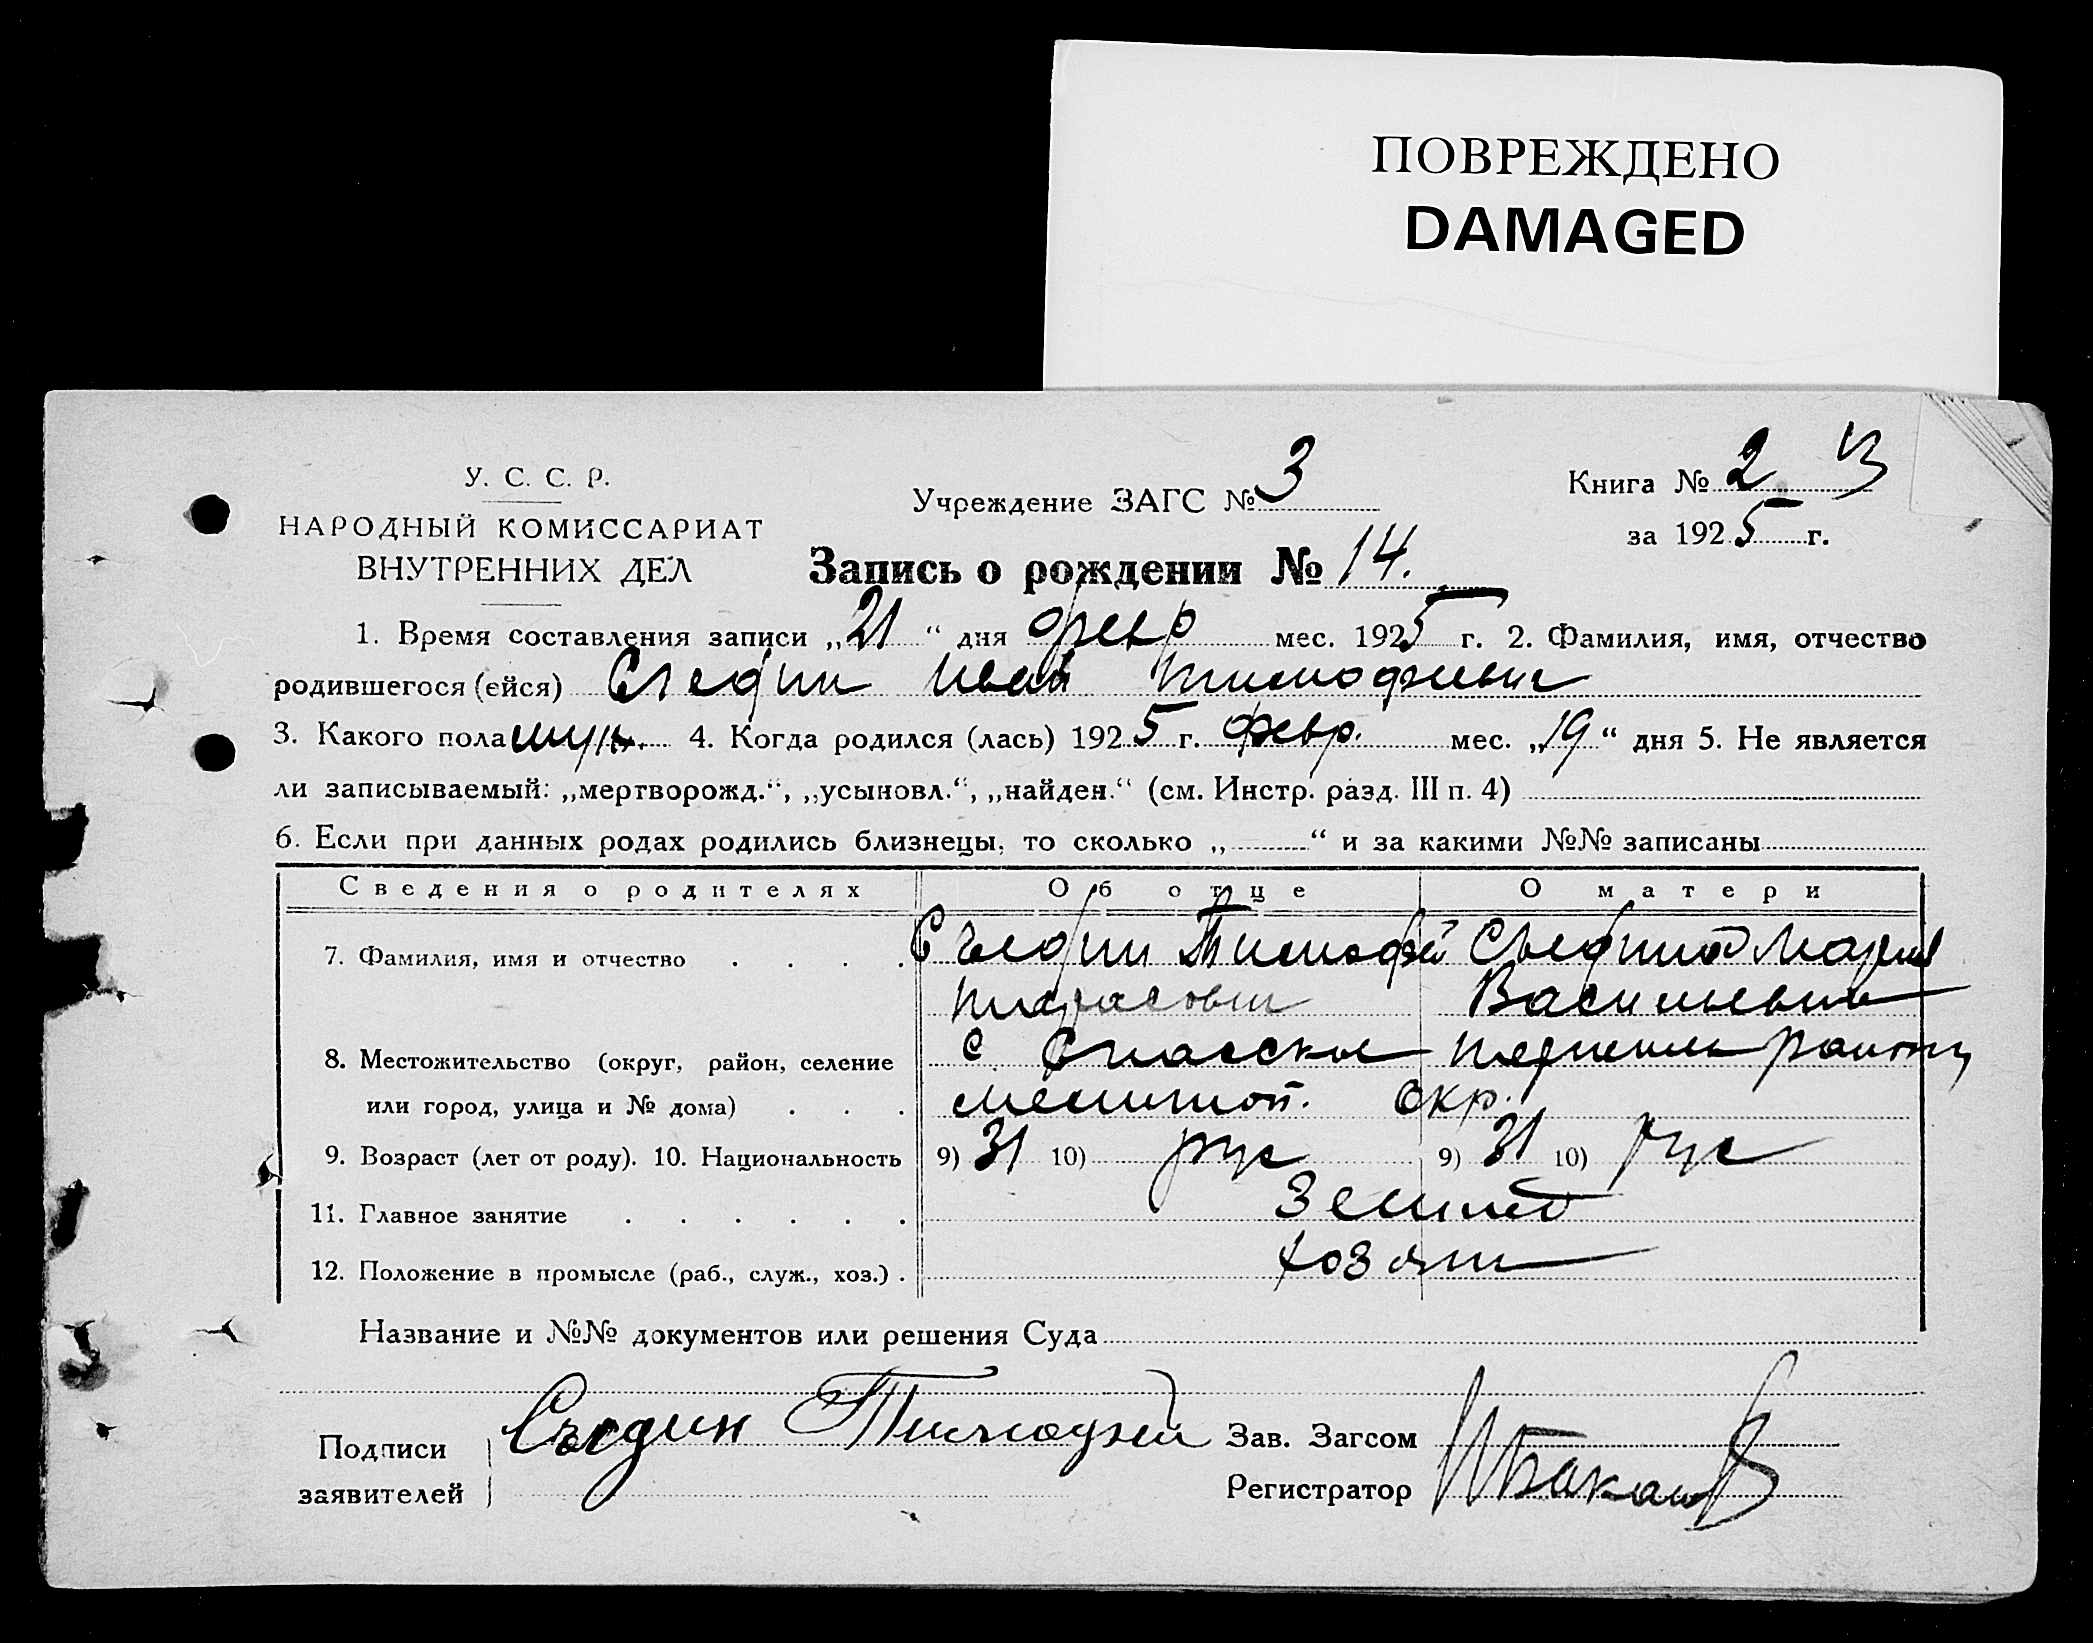 ПОВРЕЖДЕНО
DAMAGED
У. С. С. Р.
НАРОДНЫЙ КОМИССАРИАТ
ВНУТРЕННИХ ДЕЛ
Учреждение ЗАГС № 3
Книга № 2
за 1925 г.
Запись о рождении № 14.
1. Время составления записи „21“ дня февр мес. 1925 г. 2. Фамилия, имя, отчество
родившегося (ейся) Съедин Иван Тимофеевич
3. Какого пола муж. 4. Когда родился (лась) 1925 г. февр. мес. „19“ дня 5. Не является
ли записываемый: „мертворожд.“, „усыновл.“, „найден.“ (см. Инстр. разд. III п. 4)
6. Если при данных родах родились близнецы, то сколько „ “ и за какими №№ записаны
Сведения о родителях Об отце О матери
7. Фамилия, имя и отчество . . . . Съедин Тимофей Съедина Мария
Тарасович Васильевна
8. Местожительство (округ, район, селение с Спасское района
или город, улица и № дома) . . . Мелитоп. Окр.
9. Возраст (лет от роду). 10. Национальность 9) 31 10) рус 9) 31 10) рус
11. Главное занятие . . . . . . Землед
12. Положение в промысле (раб., служ., хоз.) . хозяин
Название и №№ документов или решения Суда
Подписи
заявителей
Съедин Тимофей
Зав. Загсом
Регистратор